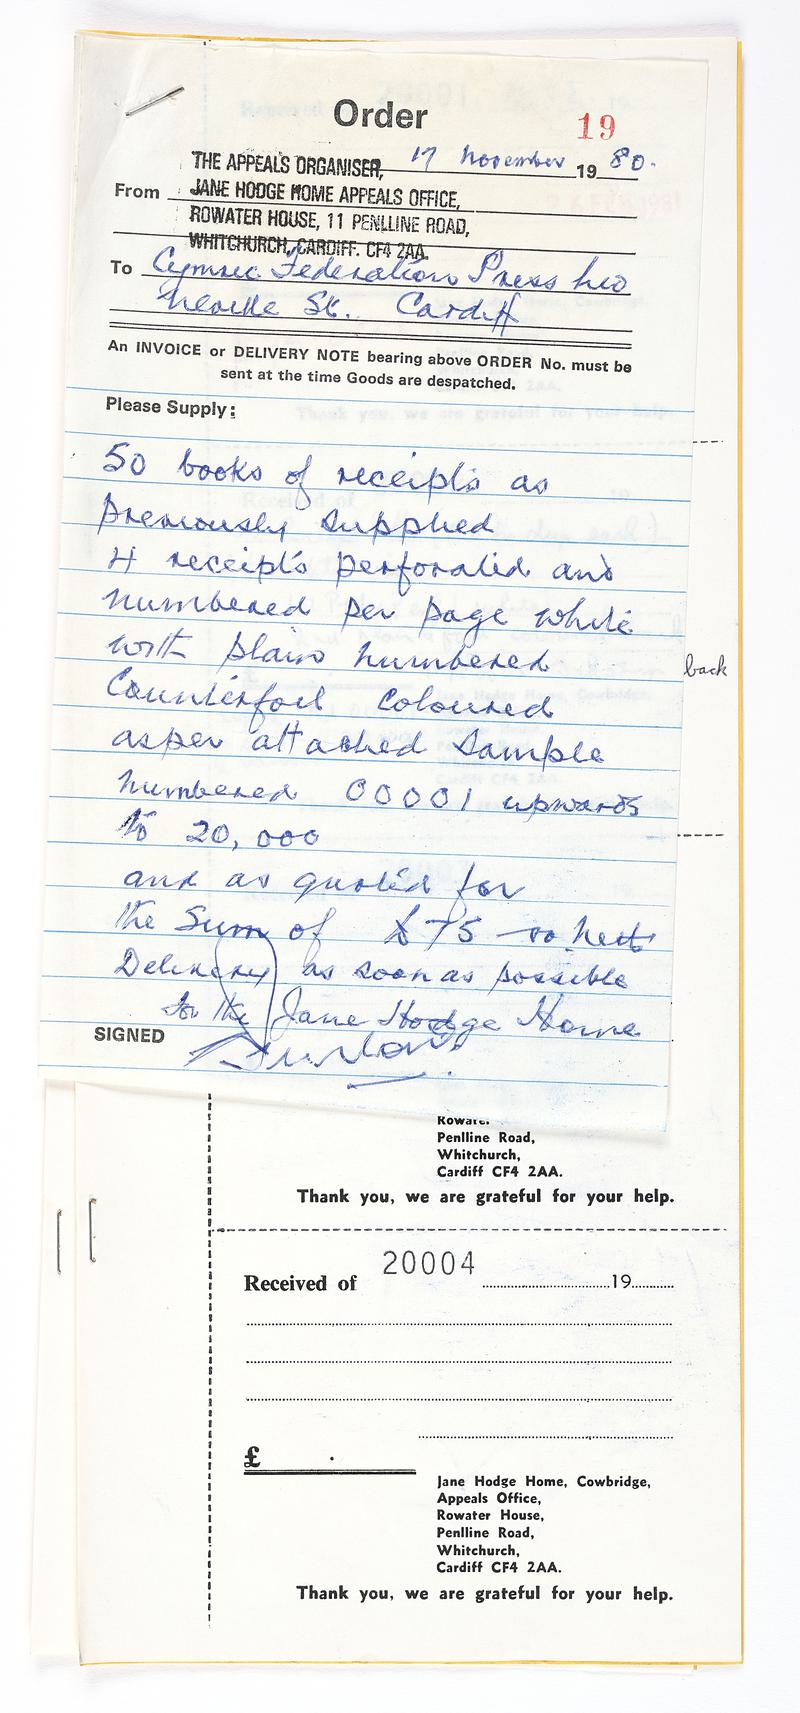 Order
19
THE APPEALS ORGANISER, 17 November 19 80.
From JANE HODGE HOME APPEALS OFFICE,
ROWATER HOUSE, 11 PENLLINE ROAD,
WHITCHURCH, CARDIFF. CF4 2AA.
To Cymric Federation Press
Neville St. Cardiff
An INVOICE or DELIVERY NOTE bearing above ORDER No. must be
sent at the time Goods are despatched.
Please Supply:
50 books of receipts as
previously supplied
4 receipts perforated and
numbered per page white
with plain numbered
back
Counterfoil coloured
as per attached sample
numbered 00001 upwards
to 20,000
and as quoted for
the Sum of £75 - 00 nett
Delivery as soon as possible
to the Jane Hodge Home
SIGNED
Penlline Road,
Whitchurch,
Cardiff CF4 2AA.
Thank you, we are grateful for your help.
20004
Received of 19
£ .
Jane Hodge Home, Cowbridge,
Appeals Office,
Rowater House,
Penlline Road,
Whitchurch,
Cardiff CF4 2AA.
Thank you, we are grateful for your help.